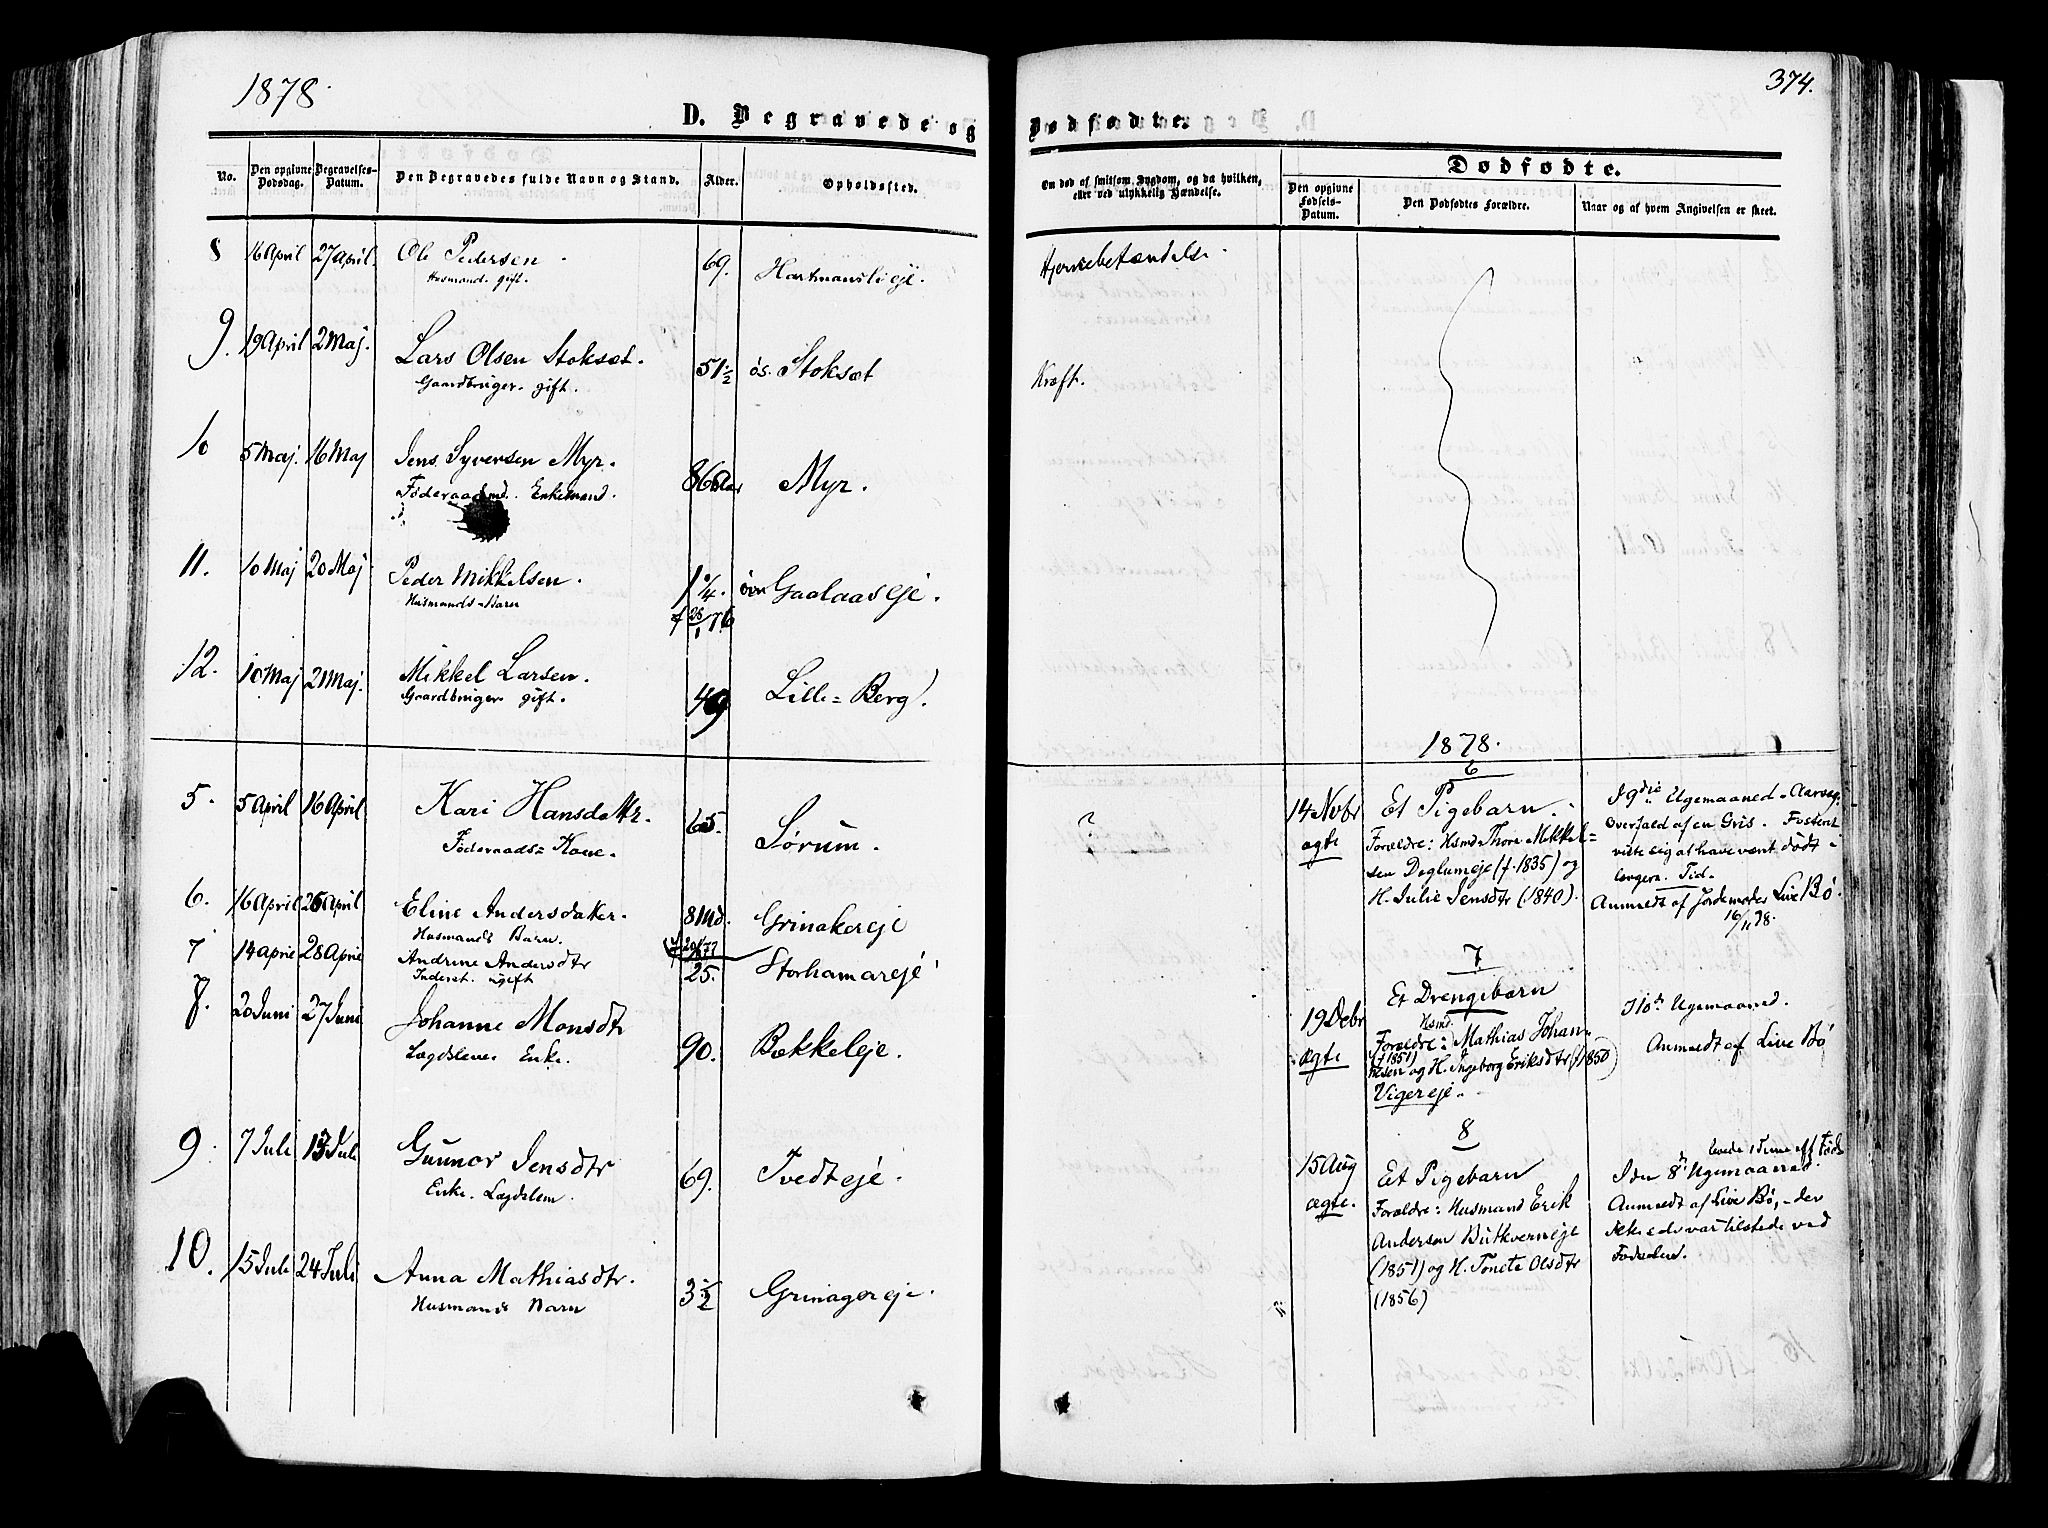 1878.
D. Begravede og
No.
Den opgivne Dødsdag.
Begravelses-Datum.
Den Begravedes fulde Navn og Stand.
Alder.
Opholdssted.
8 16 April 27 April. Ole Pedersen. 69. Hartmanslieje.
Husmand. gift.
9. 19 April 2 Maj. Lars Olsen Stoksæt. 51 1/2 øs. Stoksæt
Gaardbruger. gift.
10 5 Maj. 16 Maj Jens Syversen Myr. 86 Aar Myr.
Føderaadsmd. Enkemand.
11. 10 Maj 20 Maj Peder Mikkelsen. 1 1/4. Gaalaaseje.
Husmands-Barn f 28/1 76
12. 10 Maj 21 Maj. Mikkel Larsen. 49 Lille-Berg.
Gaardbruger gift.
5. 5 April 16 April Kari Hansdatter. 65. Sørum.
Føderaads-Kone.
6. 16 April 26 April Eline Andersdatter. 8 Md. Grinakereje
Husmands Barn.
7 14 April 28 April Andrine Andersdtr 25. Storhamareje
Inderst. ugift
8. 20 Juni 27 Juni Johanne Monsdtr 90. Bækkeleje.
Lægdslem. Enke.
9. 7 Juli 13 Juli Gunnor Jensdtr 69. Tvedteje.
Enke. Lægdslem.
10. 15 Juli 24 Juli Anna Mathiasdtr. 3 1/2 Grinagereje.
Husmands Barn
374.
Dødfødte.
Om død af smitsom Sygdom, og da hvilken,
eller ved ulykkelig Hændelse.
Dødfødte.
Den opgivne Fødsels-Datum.
Den Dødfødtes Forældre.
Naar og af hvem Angivelsen er skeet.
Hjernebetændelse.
Kræft.
?
1878.
6
14 Novbr ægte
Et Pigebarn.
Forældre: Hsmd. Thore Mikkel-
sen Deglumeje (f. 1835) og
H. Julie Jensdtr (1840).
I 9die Ugemaaned. Aarsag.
Overfald af en Gris. Fosteret
viste sig at have vært dødt
længere Tid.
Anmeldt af Jordemoder Live Bø.
16/11 78.
7.
19 Debr ægte
Et Drengebarn
Hsmd.
Forældre: Mathias Johan-
(f 1851)
nesen og H. Ingeborg Eriksdtr (1850)
Vigereje.
I 10de Ugemaaned.
Anmeldt af Live Bø
8
15 Aug ægte.
Et Pigebarn
Forældre: Husmand Erik
Andersen
(1851) og H. Tonete Olsdtr
(1856)
levede 1 Time eft Føds
I den 8de Ugemaaned.
Anmeldt af Live Bø, - der
ikke selv var tilstede ved
Fødselen.